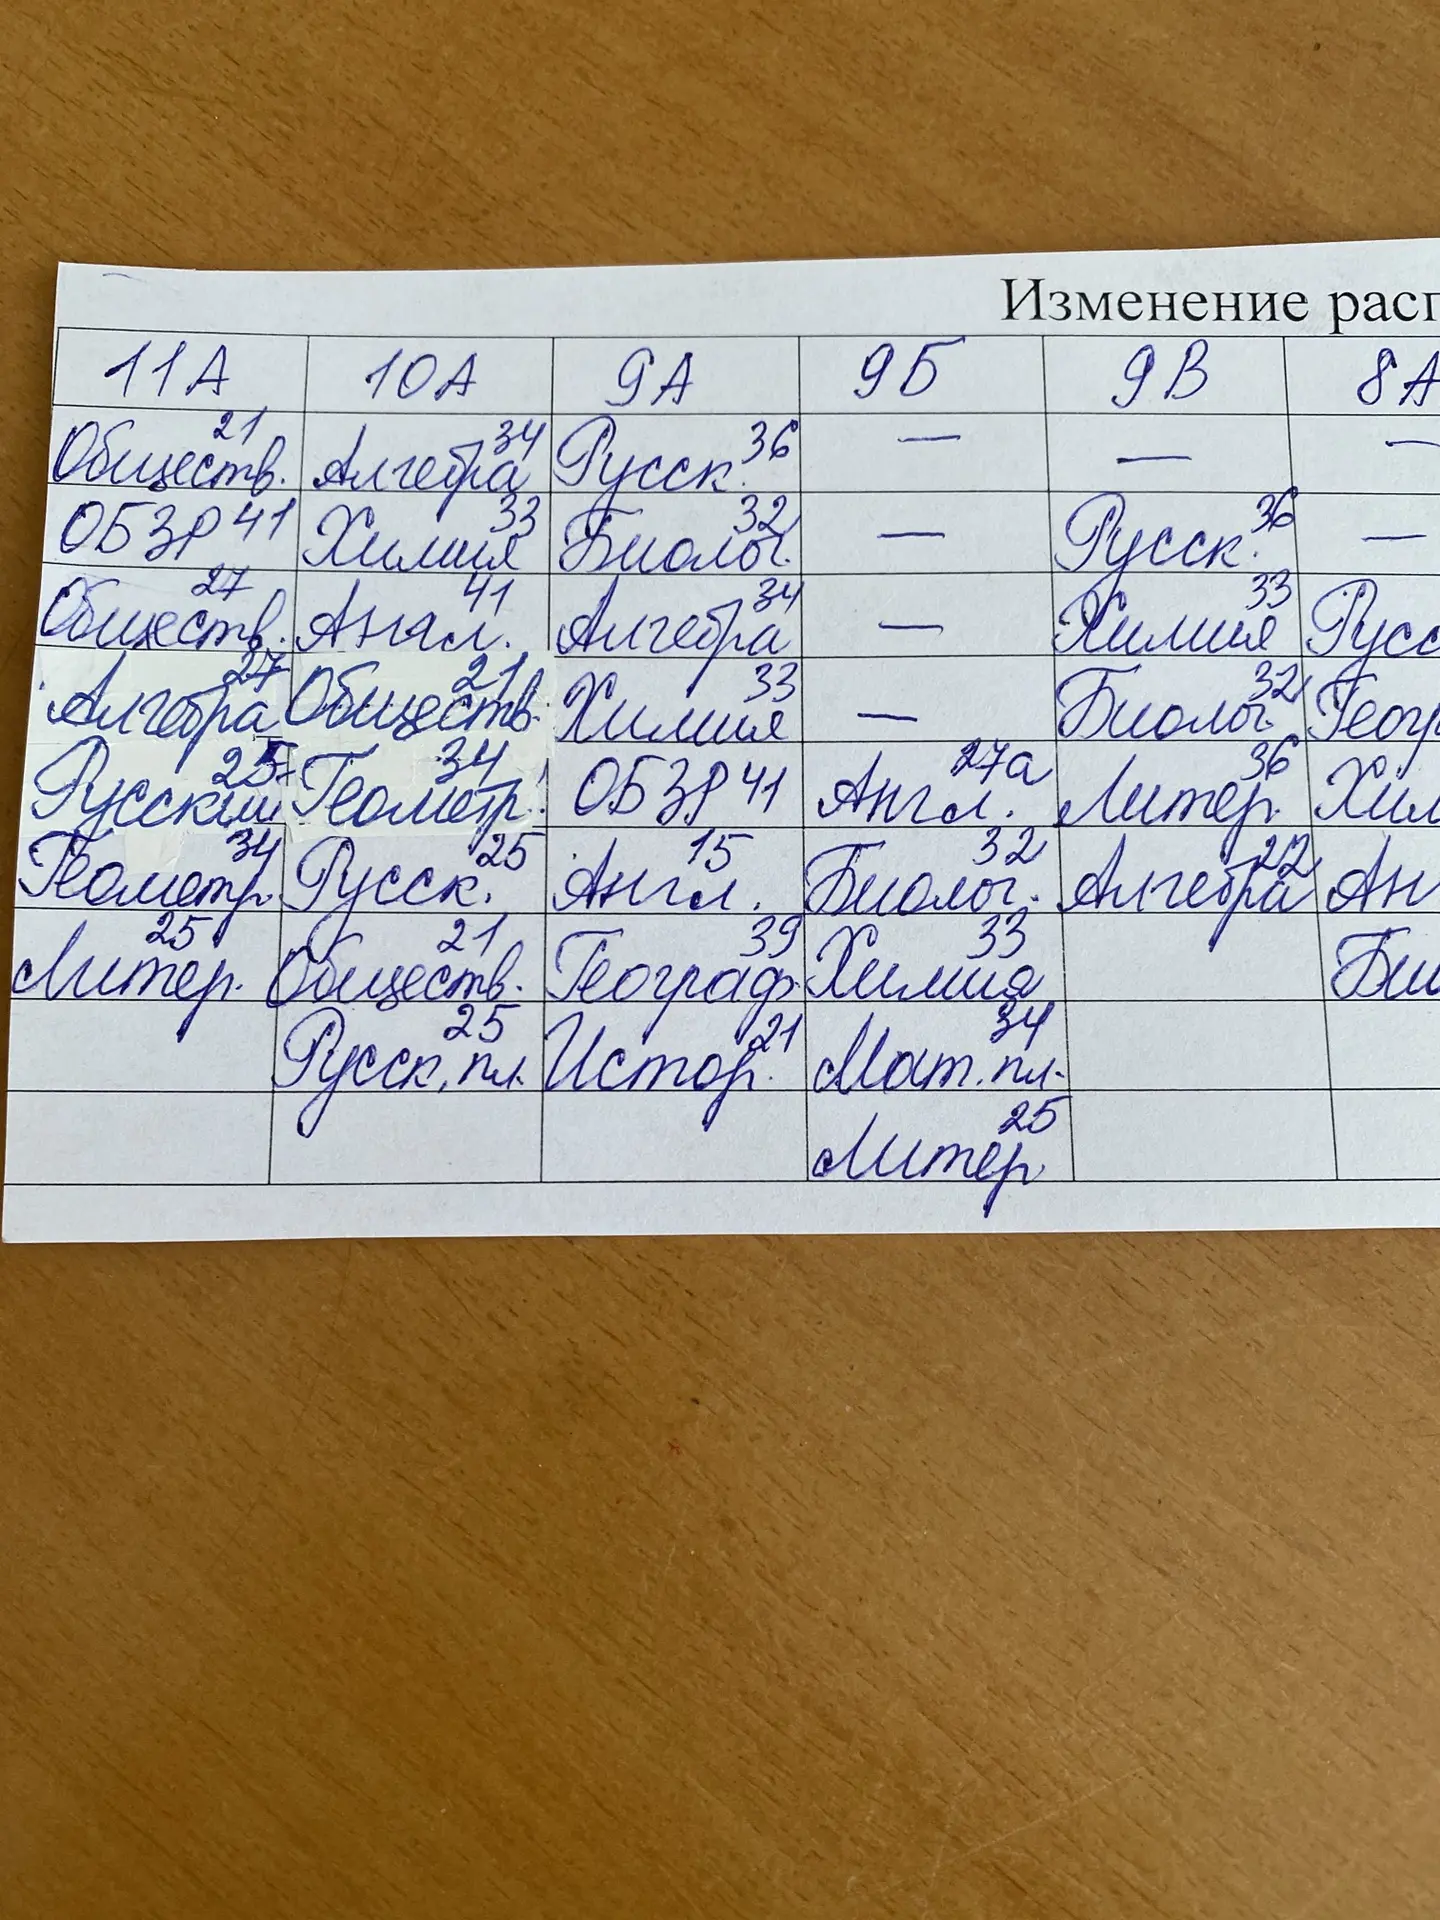 Изменение расп
11А 10А 9А 9Б 9В 8А
Обществ. 21 Алгебра 34 Русск. 36 — — —
ОБЗР 41 Химия 33 Биолог. 32 — Русск. 36 —
Обществ. 27 Англ. 41 Алгебра 34 — Химия 33 Русс
Алгебра 27 Обществ. 21 Химия 33 — Биолог. 32 Геогр
Русский 25 Геометр. 34 ОБЗР 41 Англ. 27а Литер. 36 Хим
Геометр. 34 Русск. 25 Англ. 15 Биолог. 32 Алгебра 22 Ан
Литер. 25 Обществ. 21 Географ. 39 Химия 33 Би
Русск. пл. 25 Истор. 21 Мат. пл. 34
Литер. 25